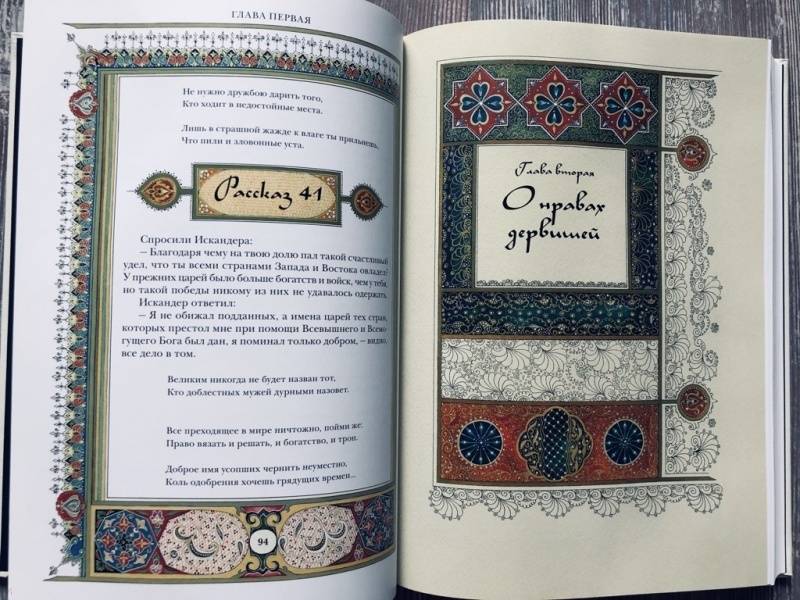 ГЛАВА ПЕРВАЯ
Не нужно дружбою дарить того,
Кто ходит в недостойные места.
Лишь в страшной жажде к влаге ты прильнешь,
Что пили и зловонные уста.
Рассказ 41
Спросили Искандера:
— Благодаря чему на твою долю пал такой счастливый
удел, что ты всеми странами Запада и Востока овладел?
У прежних царей было больше богатств и войск, чем у тебя,
но такой победы никому из них не удавалось одержать.
Искандер ответил:
— Я не обижал подданных, а имена царей тех стран,
которых престол мне при помощи Всевышнего и Всемо-
гущего Бога был дан, я поминал только добром, — видно,
все дело в том.
Великим никогда не будет назван тот,
Кто доблестных мужей дурными назовет.
Все преходящее в мире ничтожно, пойми же:
Право вязать и решать, и богатство, и трон.
Доброе имя усопших чернить неуместно,
Коль одобрения хочешь грядущих времен...
94
Глава вторая
О нравах
дервишей